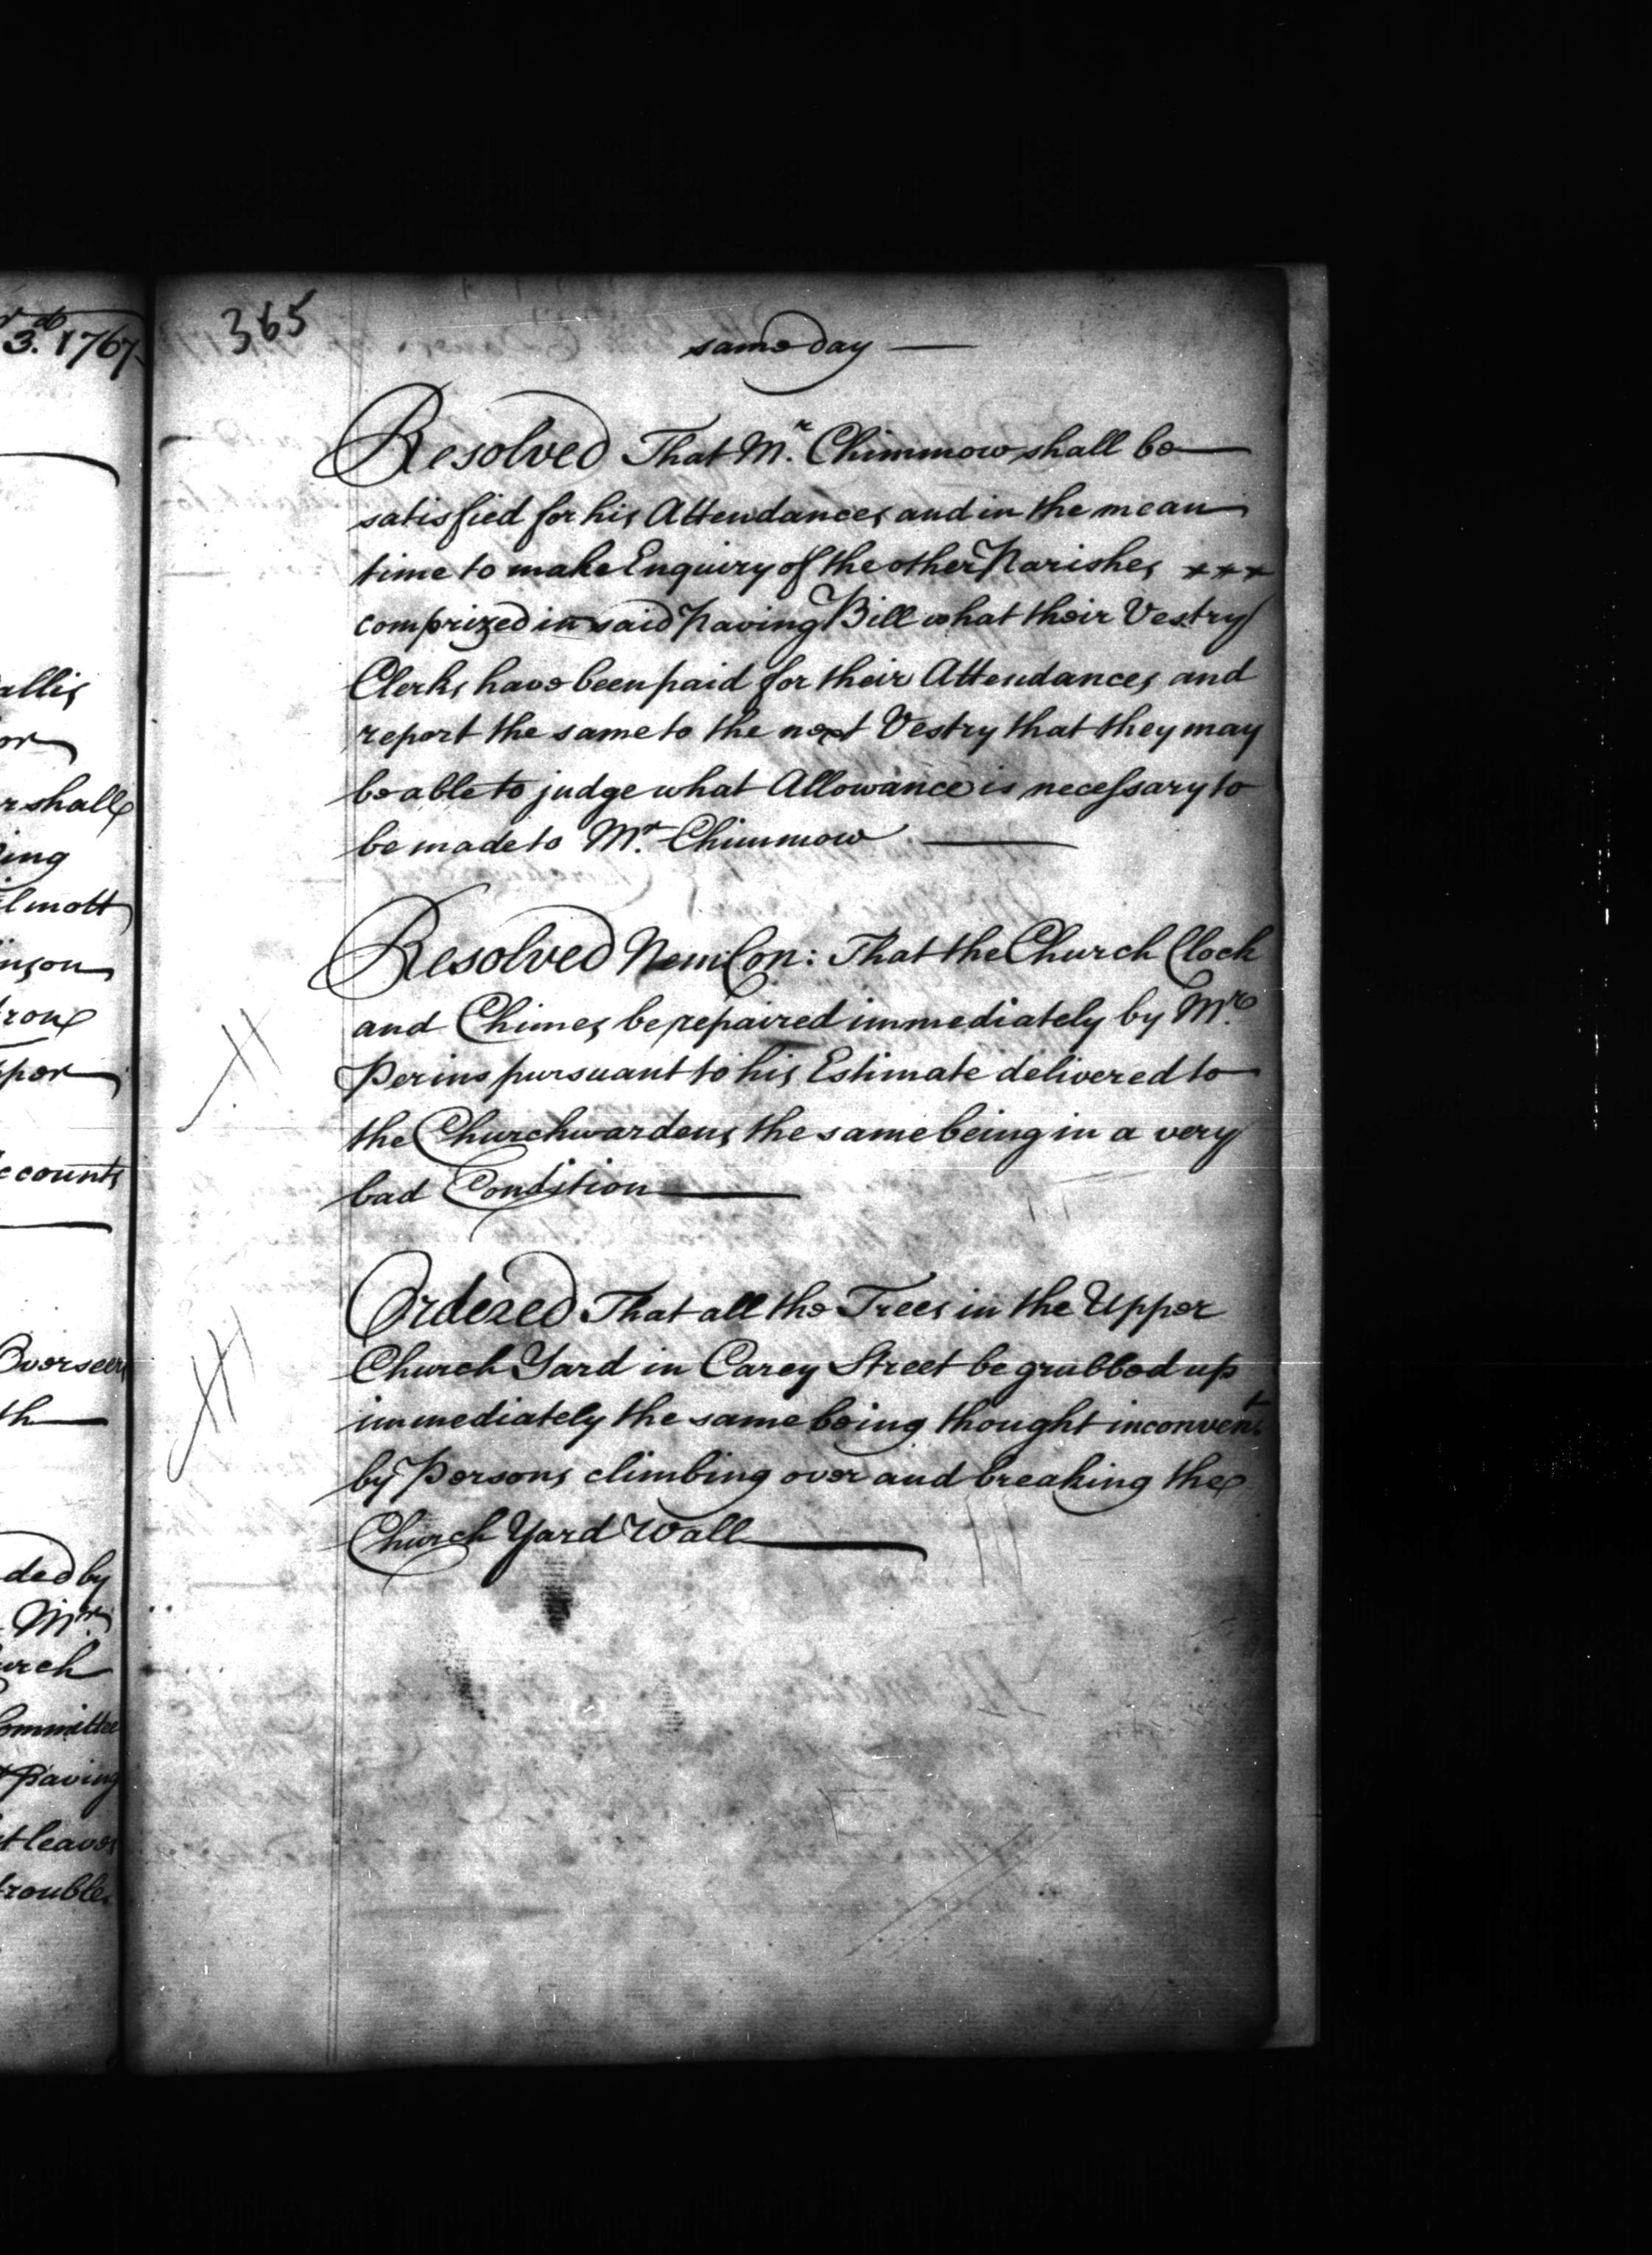 3.d 1767
allis
or
r shall
ing
lmott
inson
rone
per
ccounts
Overseers
th
ded by
Mr.
urch
Committee
Paving
t leaves
trouble
365
same day
Resolved That Mr. Chimmow shall be
satisfied for his Attendances and in the mean
time to make Enquiry of the other Parishes ***
comprized in said Paving Bill what their Vestry
Clerks have been paid for their Attendances and
report the same to the next Vestry that they may
be able to judge what Allowance is necessary to
be made to Mr. Chimmow
Resolved Nem: Con: That the Church Clock
and Chimes be repaired immediately by Mr.
Perins pursuant to his Estimate delivered to
the Churchwardens the same being in a very
bad Condition
Ordered That all the Trees in the Upper
Church Yard in Carey Street be grubbed up
immediately the same being thought inconvent.
by Persons climbing over and breaking the
Church Yard Wall